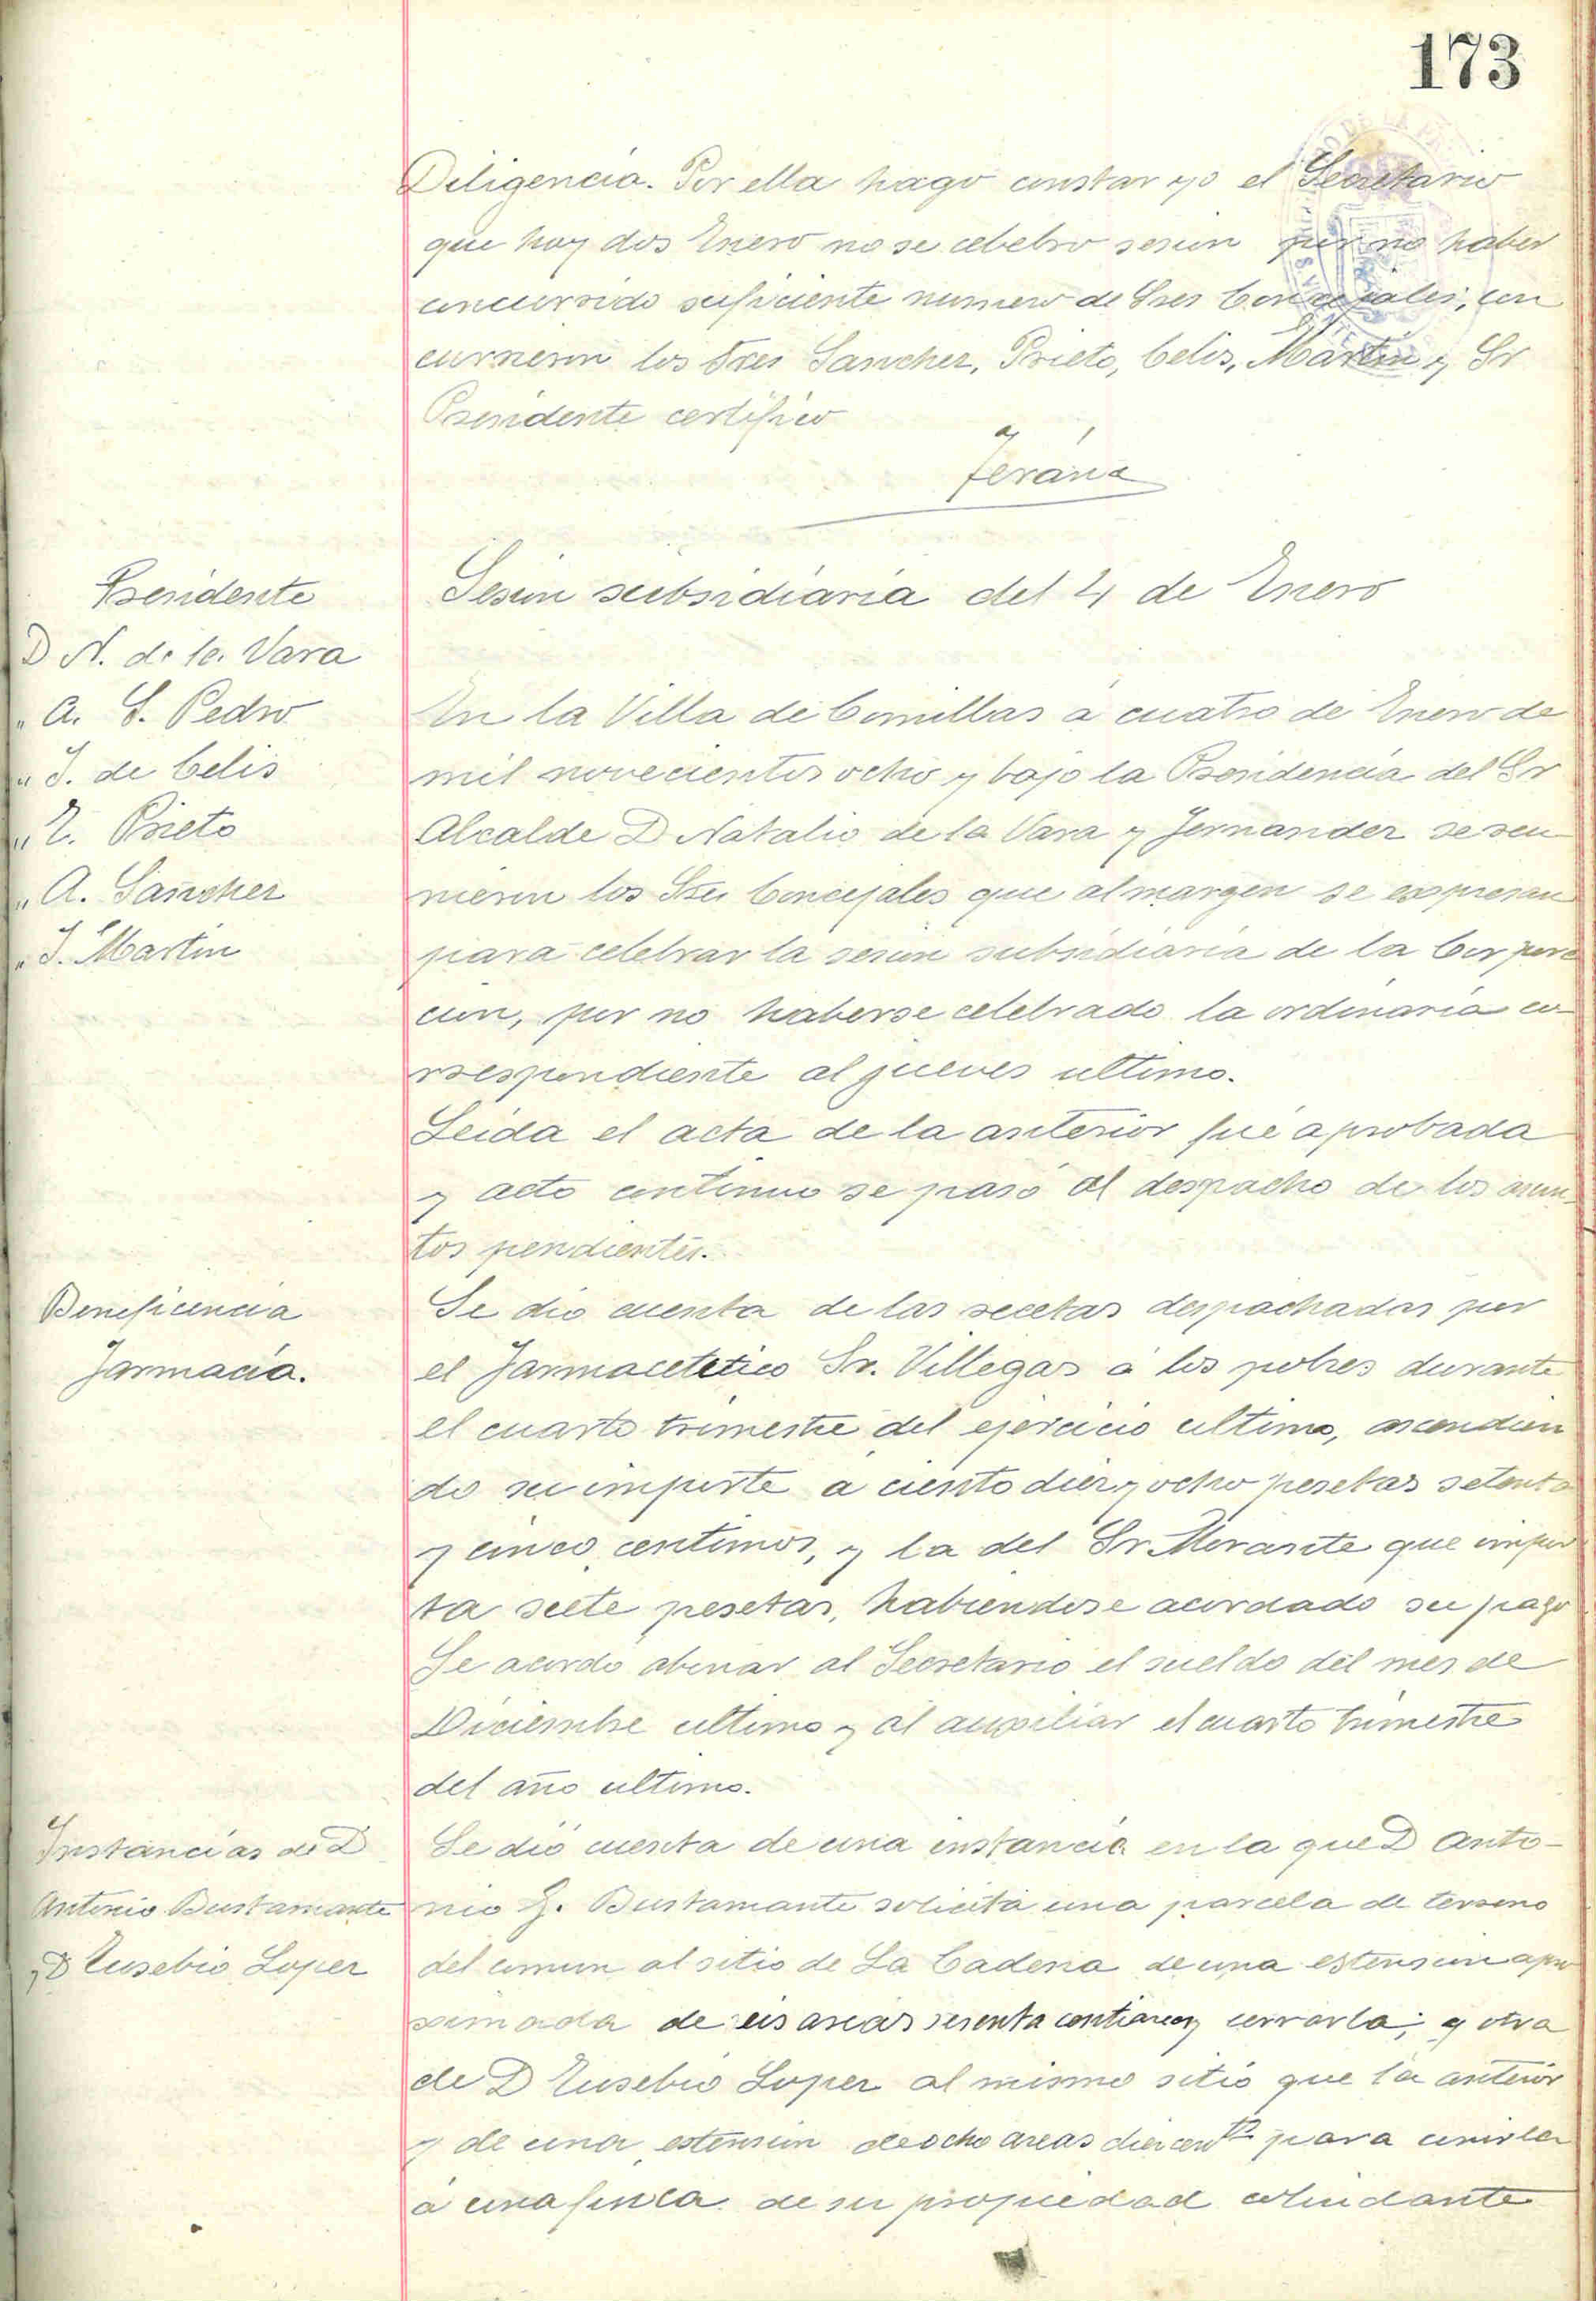 173
Diligencia. Por ella hago constar yo el Secretario
que hoy dos Enero no se celebro sesion por no haber
concurrido suficiente numero de Sres Concejales, con
currieron los Sres Sanchez, Prieto, Celis, Martin y Sr
Presidente certifico
Sesion subsidiaria del 4 de Enero
Presidente
D N. de la Vara
" A. S. Pedro
" J. de Celis
" E. Prieto
" A. Sanchez
" J. Martin
En la Villa de Comillas a cuatro de Enero de
mil novecientos ocho y bajo la Presidencia del Sr
Alcalde D Natalio de la Vara y Fernandez se reu
nieron los Sres Concejales que al margen se expresan
para celebrar la sesion subsidiaria de la Corpora
cion, por no haberse celebrado la ordinaria co
rrespondiente al jueves ultimo.
Leida el acta de la anterior fué aprobada
y acto continuo se pasó al despacho de los asun
tos pendientes.
Beneficencia
Farmacia.
Se dio cuenta de las recetas despachadas por
el Farmaceutico Sr. Villegas á los pobres durante
el cuarto trimestre del ejercicio ultimo, ascendien
do su importe a ciento diez y ocho pesetas setenta
y cinco centimos, y la del Sr. Morante que impor
ta siete pesetas, habiendose acordado su pago
Se acordo abonar al Secretario el sueldo del mes de
Diciembre ultimo y al auxiliar el cuarto trimestre
del año ultimo.
Instancias de D
Antonio Bustamante
y D Eusebio Lopez
Se dió cuenta de una instancia en la que D Anto-
nio G. Bustamante solicita una parcela de terreno
del comun al sitio de La Cadena de una estension apro
ximada de seis areas sesenta centiareas cerrarla; y otra
de D Eusebio Lopez al mismo sitio que la anterior
y de una estension de ocho areas diez cent para unirla
a una finca de su propiedad colindante